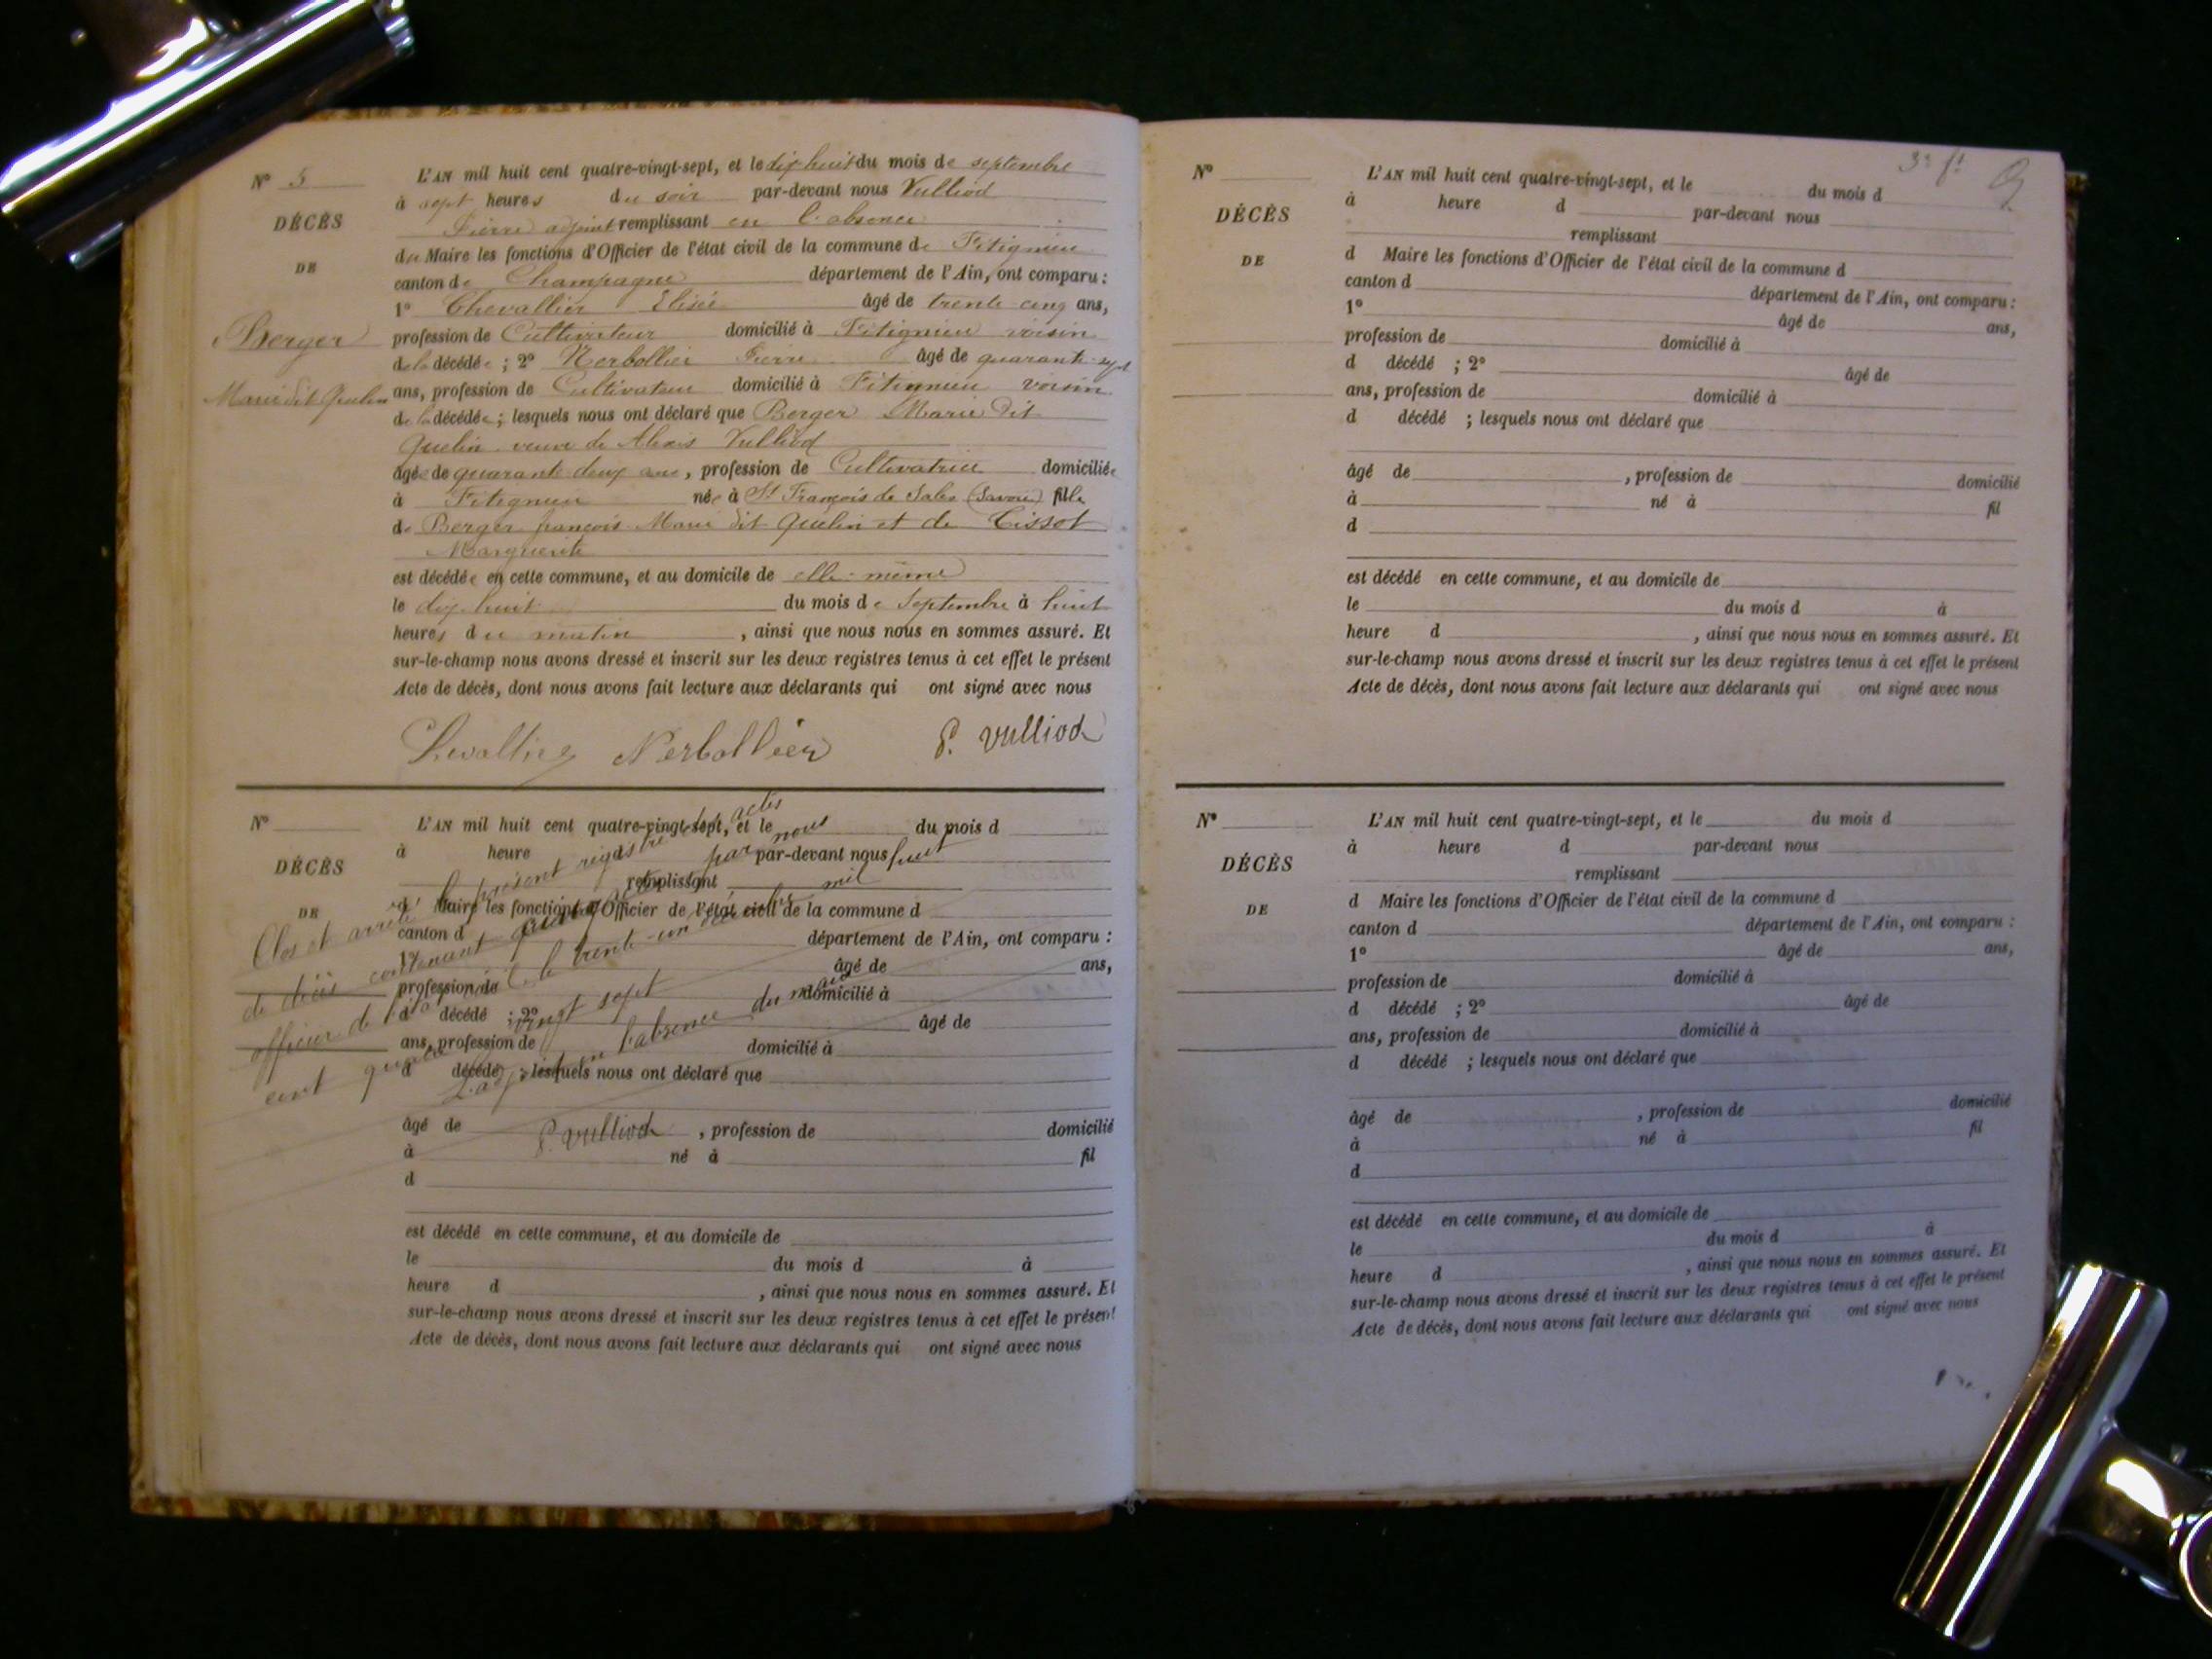 N° 5
DÉCÈS
DE
Berger
Marie dit Quelin
L'AN mil huit cent quatre-vingt-sept, et le dix huit du mois de septembre
à sept heures du soir par-devant nous Vulliod
Pierre adjoint remplissant en l'absence
du Maire les fonctions d'Officier de l'état civil de la commune de Fitignieu
canton de Champagne département de l'Ain, ont comparu :
1° Chevallier Elisée âgé de trente-cinq ans,
profession de Cultivateur domicilié à Fitignieu voisin
de la décédée ; 2° Nerbollier Pierre âgé de quarante-sept
ans, profession de Cultivateur domicilié à Fitignieu voisin
de la décédée ; lesquels nous ont déclaré que Berger Marie dit
Quelin veuve de Alexis Vulliod
âgée de quarante deux ans, profession de Cultivatrice domiciliée
à Fitignieu née à St François de Sales (Savoie) fille
de Berger françois Marie dit Quelin et de Tissot
Marguerite
est décédée en cette commune, et au domicile de elle-même
le dix huit du mois de Septembre à huit
heures du matin , ainsi que nous nous en sommes assuré. Et
sur-le-champ nous avons dressé et inscrit sur les deux registres tenus à cet effet le présent
Acte de décès, dont nous avons fait lecture aux déclarants qui ont signé avec nous
Chevallier Nerbollier P. Vulliod
N°
DÉCÈS
DE
L'AN mil huit cent quatre-vingt-sept, et le du mois d
à heure d par-devant nous
remplissant
d Maire les fonctions d'Officier de l'état civil de la commune d
canton d département de l'Ain, ont comparu :
1° âgé de ans,
profession de domicilié à
d décédé ; 2° âgé de
ans, profession de domicilié à
d décédé ; lesquels nous ont déclaré que
âgé de , profession de domicilié
à né à fil
d
est décédé en cette commune, et au domicile de
le du mois d à
heure d , ainsi que nous nous en sommes assuré. Et
sur-le-champ nous avons dressé et inscrit sur les deux registres tenus à cet effet le présent
Acte de décès, dont nous avons fait lecture aux déclarants qui ont signé avec nous
Clos et arrêté le présent registre des actes
de décès contenant actes par nous
officier de l'état civil le trente-un décembre mil huit
cent quatre vingt sept
L'adjoint en l'absence du maire
P. Vulliod
N°
DÉCÈS
DE
L'AN mil huit cent quatre-vingt-sept, et le du mois d
à heure d par-devant nous
remplissant
d Maire les fonctions d'Officier de l'état civil de la commune d
canton d département de l'Ain, ont comparu :
1° âgé de ans,
profession de domicilié à
d décédé ; 2° âgé de
ans, profession de domicilié à
d décédé ; lesquels nous ont déclaré que
âgé de , profession de domicilié
à né à fil
d
est décédé en cette commune, et au domicile de
le du mois d à
heure d , ainsi que nous nous en sommes assuré. Et
sur-le-champ nous avons dressé et inscrit sur les deux registres tenus à cet effet le présent
Acte de décès, dont nous avons fait lecture aux déclarants qui ont signé avec nous
N°
DÉCÈS
DE
L'AN mil huit cent quatre-vingt-sept, et le du mois d
à heure d par-devant nous
remplissant
d Maire les fonctions d'Officier de l'état civil de la commune d
canton d département de l'Ain, ont comparu :
1° âgé de ans,
profession de domicilié à
d décédé ; 2° âgé de
ans, profession de domicilié à
d décédé ; lesquels nous ont déclaré que
âgé de , profession de domicilié
à né à fil
d
est décédé en cette commune, et au domicile de
le du mois d à
heure d , ainsi que nous nous en sommes assuré. Et
sur-le-champ nous avons dressé et inscrit sur les deux registres tenus à cet effet le présent
Acte de décès, dont nous avons fait lecture aux déclarants qui ont signé avec nous